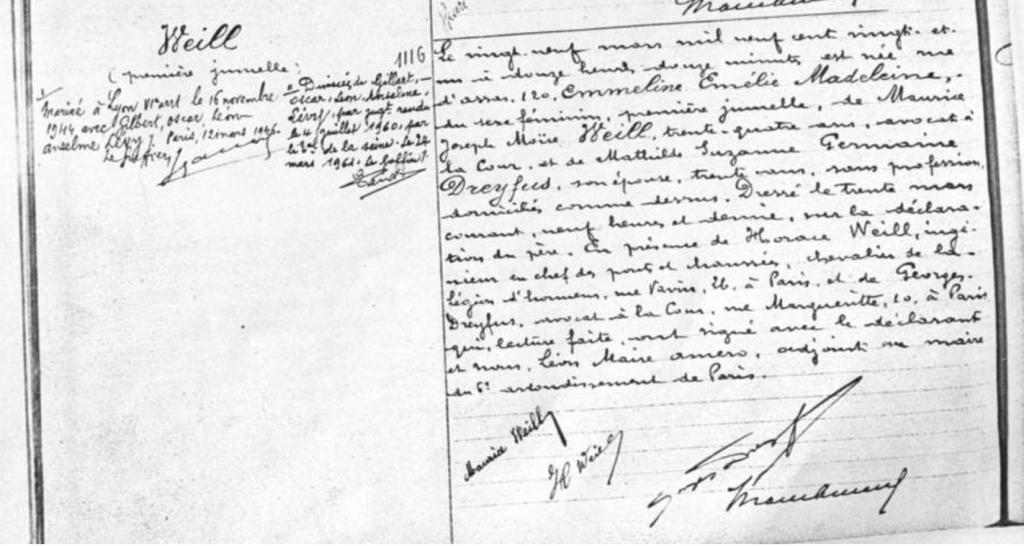 Weill
(première jumelle)
1116
Marié à Lyon VIe arrt le 16 novembre
1944 avec Gilbert, Oscar, Léon
Anselme Lévy. Paris, 12 mars 1946.
Le greffier,
Divorcée de Gilbert,
Oscar, Léon, Anselme
Lévy, par jugt rendu
le 4 juillet 1960, par
le de la Seine. Le 24
mars 1961. Le Greffier
Le vingt-neuf mars mil neuf cent vingt-et-
un à douze heures douze minutes est née, rue
d'assas, 120, Emmeline Emélie Madeleine,
du sexe féminin, première jumelle, de Maurice
Joseph Moïse Weill, trente-quatre ans, avocat à
la Cour, et de Mathilde Suzanne Germaine
Dreyfus, son épouse, trente ans, sans profession,
domiciliés comme dessus. Dressé le trente mars
courant, neuf heures et demie, sur la déclara-
tion du père. En présence de Horace Weill, ingé-
nieur en chef des ponts et chaussées, chevalier de la
légion d'honneur, rue 26, à Paris, et de Georges
Dreyfus, avocat à la Cour, rue Margueritte, 10, à Paris
qui, lecture faite, ont signé avec le déclarant
et nous, Léon Marie adjoint au maire
du 6e arrondissement de Paris.
Maurice Weill
H Weill